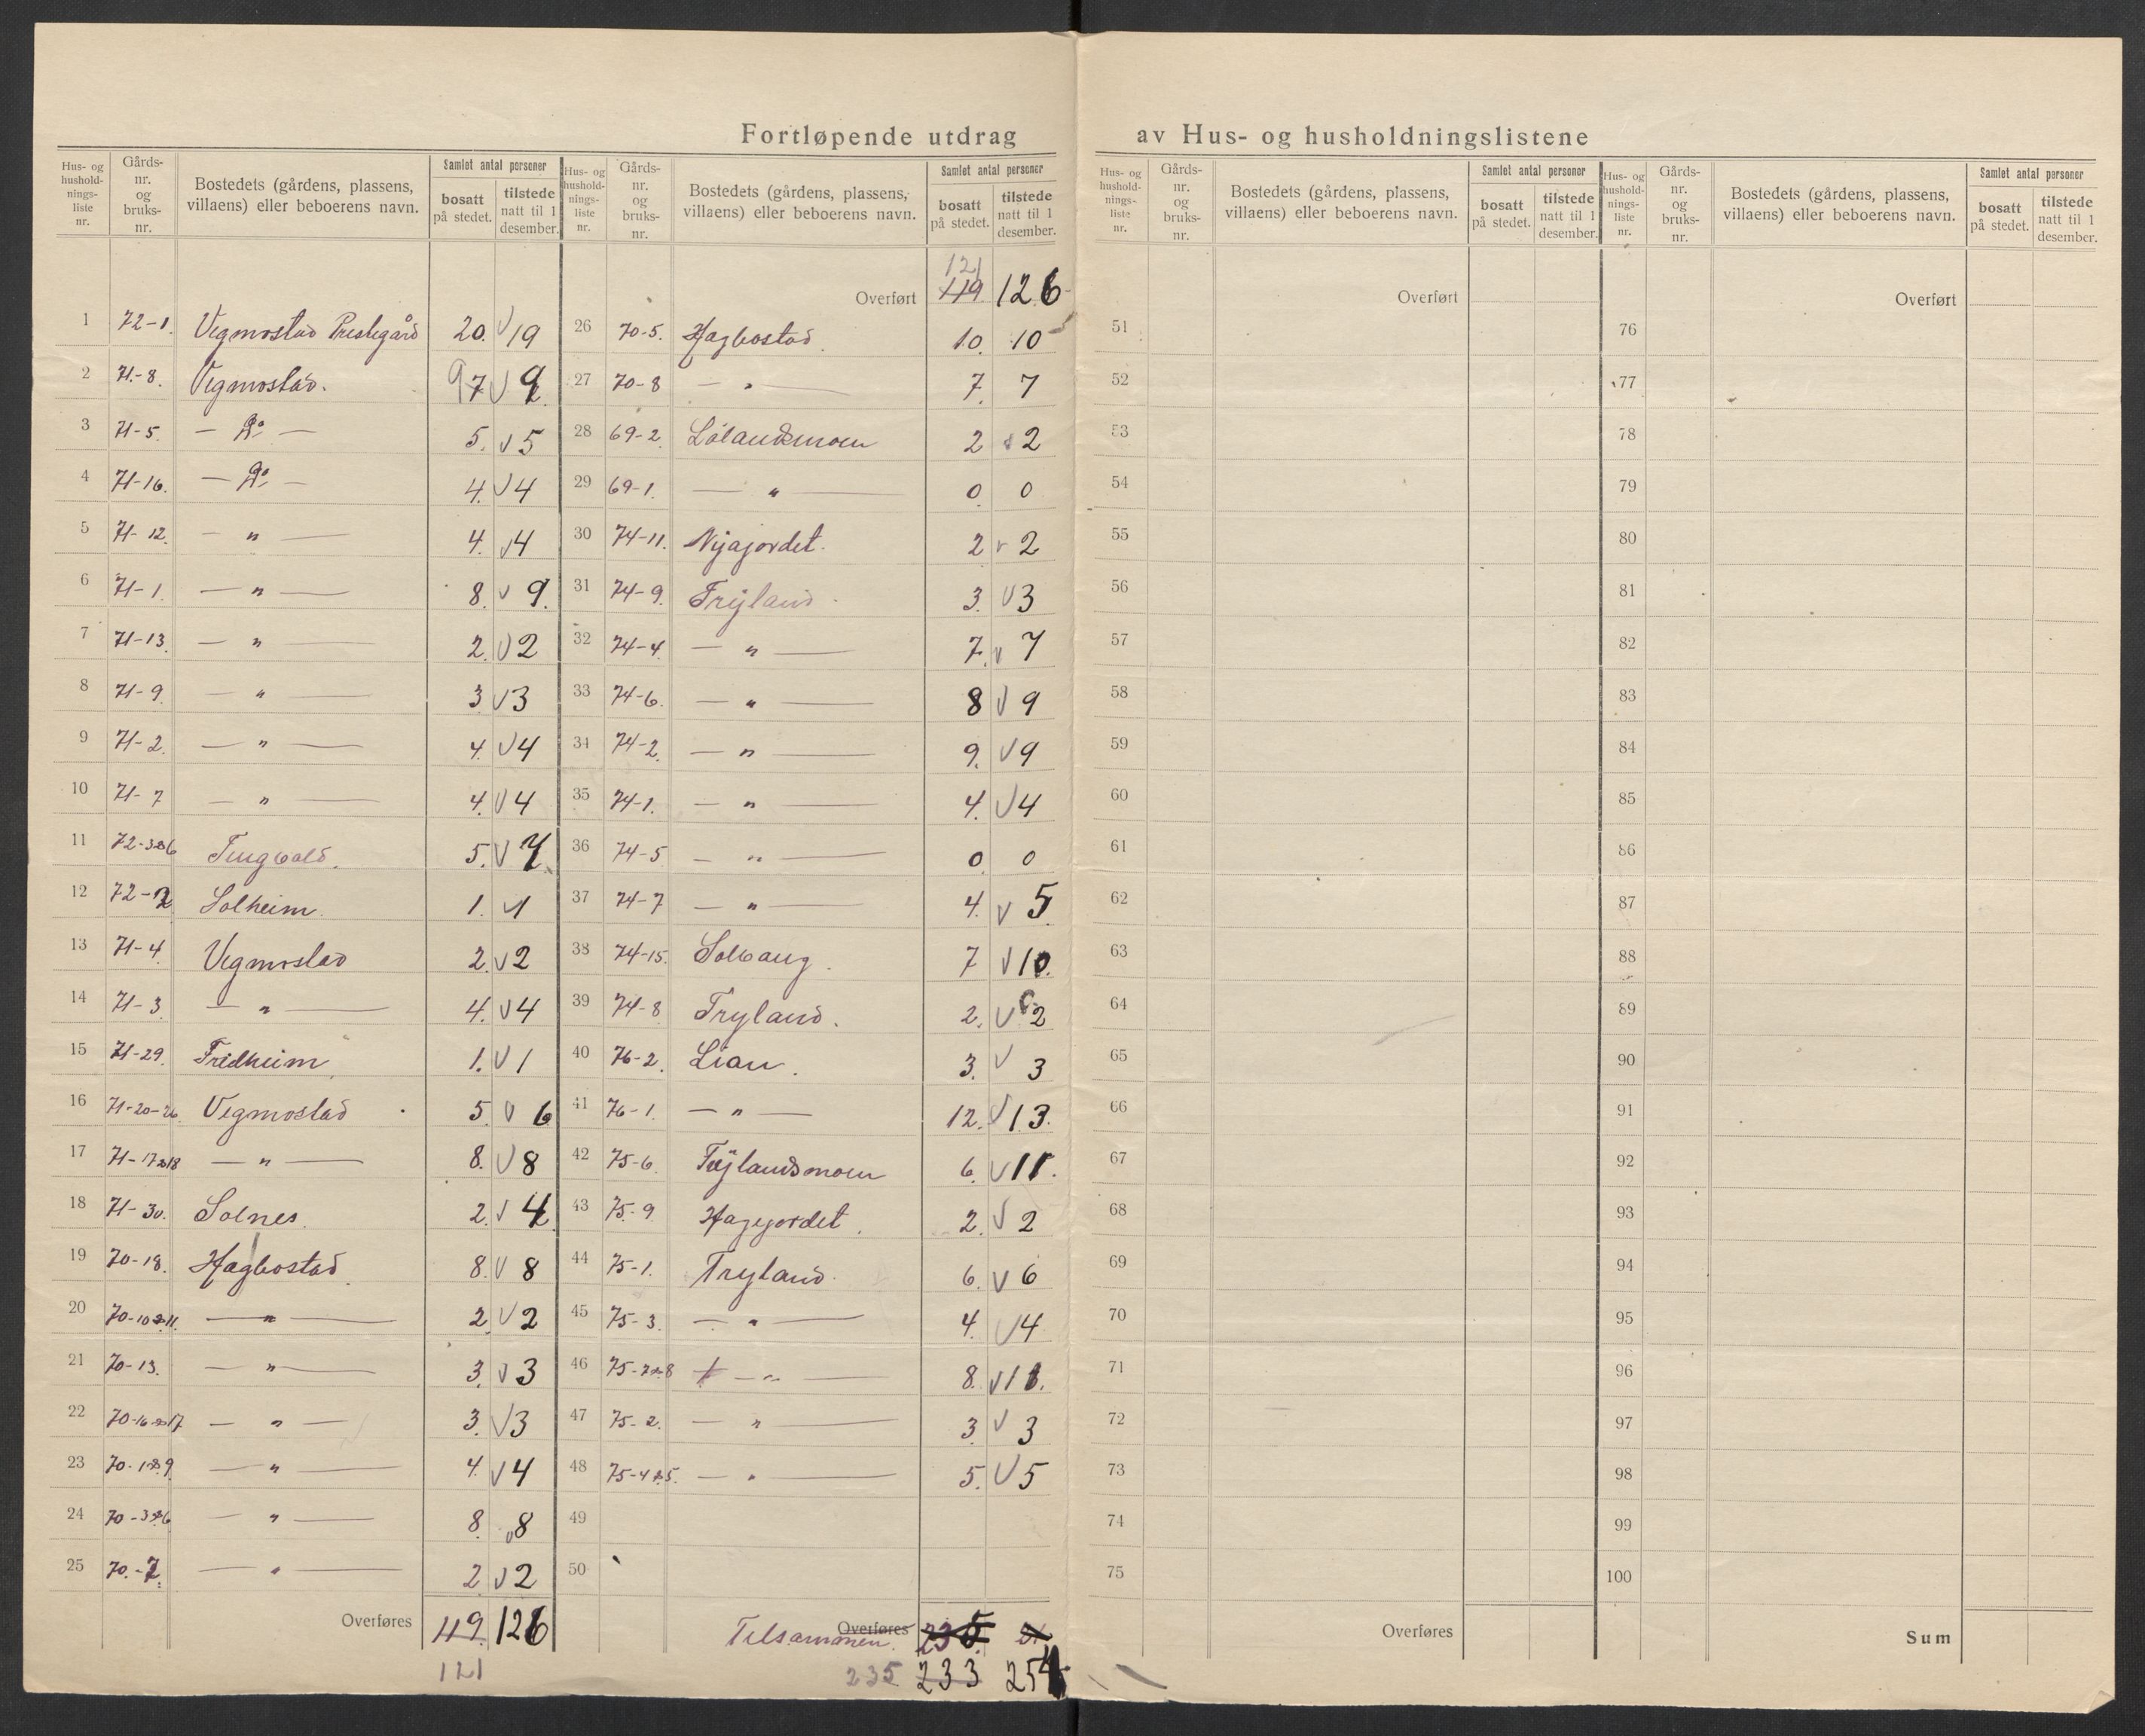 Fortløpende utdrag av Hus- og husholdningslistene
Hus- og husholdnings-liste nr. | Gårds-nr. og bruks-nr. | Bostedets (gårdens, plassens, villaens) eller beboerens navn. | Samlet antal personer | bosatt på stedet. | tilstede natt til 1 desember.
1 72-1. Vegmostad Prestegård 20. 19
2 71-8. Vegmostad. 9 7 9
3 71-5. — Do — 5. 5
4 71-16. — Do — 4. 4
5 71-12. — " — 4. 4
6 71-1. — " — 8. 9.
7 71-13. — " — 2. 2
8 71-9. — " — 3 3
9 71-2. — " — 4. 4
10 71-7 — " — 4. 4
11 72-3&6 Tingvold. 5. 7
12 72-2 Solheim. 1. 1
13 71-4. Vegmostad 2. 2
14 71-3. — " — 4. 4
15 71-29. Fridheim 1. 1
16 71-20-26. Vegmostad 5. 6
17 71-17&18 — " — 8. 8
18 71-30. Solnes. 2. 4
19 70-18. Hægbostad. 8. 8
20 70-10&11. — " — 2. 2
21 70-13. — " — 3. 3
22 70-16&17 — " — 3. 3
23 70-1&9 — " — 4. 4
24 70-3&6 — " — 8. 8
25 70.-7. — " — 2. 2
Overføres 119. 126
121
Hus- og husholdnings-liste nr. | Gårds-nr. og bruks-nr. | Bostedets (gårdens, plassens, villaens) eller beboerens navn. | Samlet antal personer | bosatt på stedet. | tilstede natt til 1 desember.
121
Overført 119. 126
26 70-5. Hægbostad. 10. 10
27 70-8 — " — 7. 7
28 69-2. Lølandsmoen 2 2
29 69-1. — " — 0. 0
30 74-11. Nyajordet. 2 2
31 74-9. Tryland. 3. 3
32 74-4. — " — 7. 7
33 74-6. — " — 8 9
34 74-2. — " — 9. 9
35 74-1. — " — 4. 4
36 74-5 — " — 0. 0
37 74-7 — " — 4. 5.
38 74-15. Solvang. 7 10.
39 74-8 Tryland. 2. 2
40 76-2. Lian. 3. 3
41 76-1. — " — 12. 13.
42 75-6. Trylandsmoen 6. 11.
43 75-9 Hagejordet. 2. 2
44 75-1. Tryland. 6. 6
45 75-3. — " — 4. 4
46 75-7&8 — " — 8. 11.
47 75-2. — " — 3. 3
48 75-4&5. — " — 5. 5
49
50
Overføres
Tilsammen. 235
235 233 254
Hus- og husholdnings-liste nr. | Gårds-nr. og bruks-nr. | Bostedets (gårdens, plassens, villaens) eller beboerens navn. | Samlet antal personer | bosatt på stedet. | tilstede natt til 1 desember.
Overført
51
52
53
54
55
56
57
58
59
60
61
62
63
64
65
66
67
68
69
70
71
72
73
74
75
Overføres
Hus- og husholdnings-liste nr. | Gårds-nr. og bruks-nr. | Bostedets (gårdens, plassens, villaens) eller beboerens navn. | Samlet antal personer | bosatt på stedet. | tilstede natt til 1 desember.
Overført
76
77
78
79
80
81
82
83
84
85
86
87
88
89
90
91
92
93
94
95
96
97
98
99
100
Sum